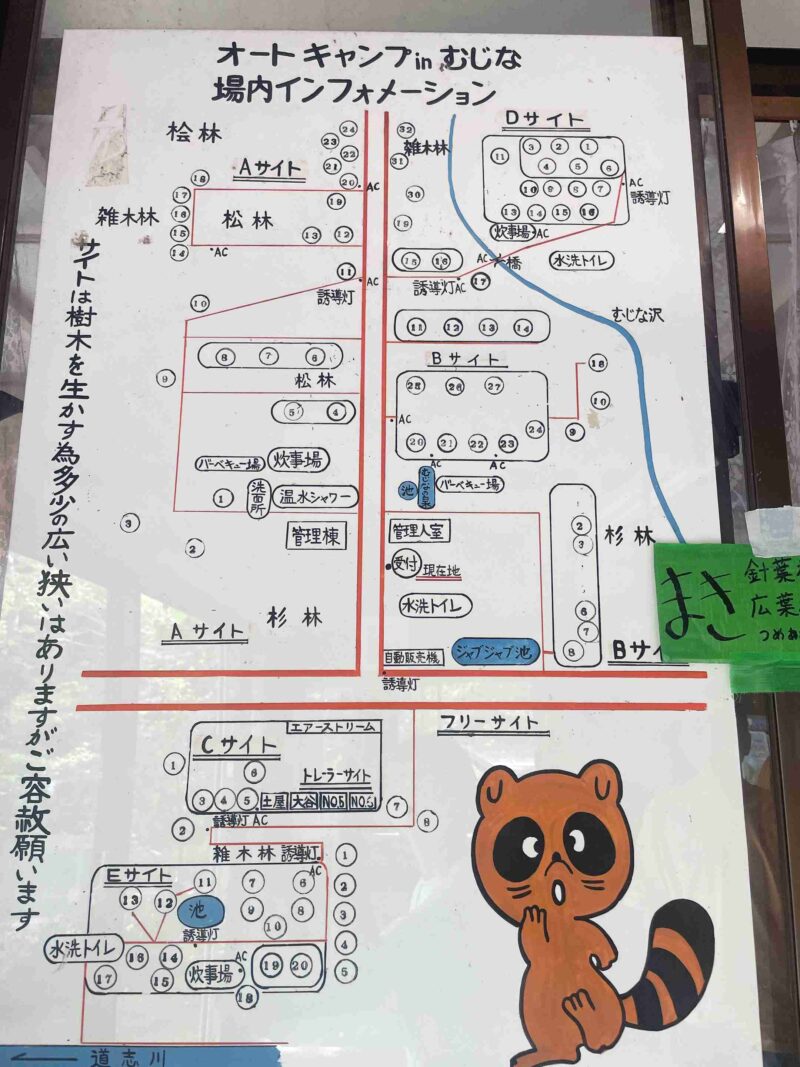 オートキャンプinむじな
場内インフォメーション
サイトは樹木を生かす為多少の広い狭いはありますがご容赦願います
桧林
24
23
22
21
20 AC
Aサイト
18
17
雑木林 16
15
14
AC
松林
19
13 12
11
AC
誘導灯
10
9
8 7 6
松林
5 4
バーベキュー場
炊事場
1
洗面所
温水シャワー
3
2
管理棟
杉林
Aサイト
32
雑木林
31
30
19
15 16
誘導灯 AC
17
AC
橋
Dサイト
11
3 2 1
4 5 6
10 9 8 7
13 14 15 16
AC
誘導灯
炊事場 AC
水洗トイレ
むじな沢
11 12 13 14
Bサイト
25 26 27
AC
20 21 22 23 24
AC AC
18
10
9
池
バーベキュー場
管理人室
受付
現在地
水洗トイレ
自動販売機
ジャブジャブ池
誘導灯
2
3
6
7
8
杉林
Bサ
まき
針葉
広葉
つめあ
フリーサイト
エアーストリーム
Cサイト
6
トレーラーサイト
3 4 5 土屋 大谷 NO.5 NO.6
1
2
誘導灯 AC
7
8
雑木林 誘導灯
AC
1
2
3
4
5
Eサイト
11
7 6
13 12
池
9 8
10
誘導灯
水洗トイレ
16 14
17 15
炊事場
AC
18
19 20
道志川